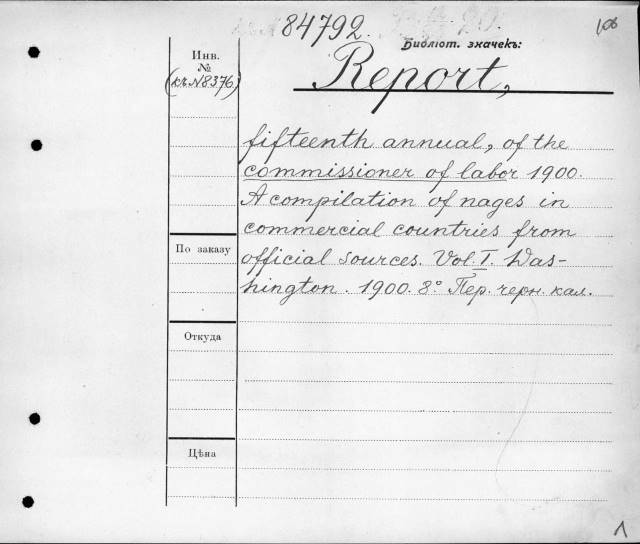 84792.
106
Библіот. значекъ:
Инв.
№
(къ N8376)
Report,
fifteenth annual, of the
commissioner of labor 1900.
A compilation of nages in
commercial countries from
По заказу
official sources. Vol. I. Was-
hington. 1900. 8° Пер. черн. кал.
Откуда
Цѣна
1